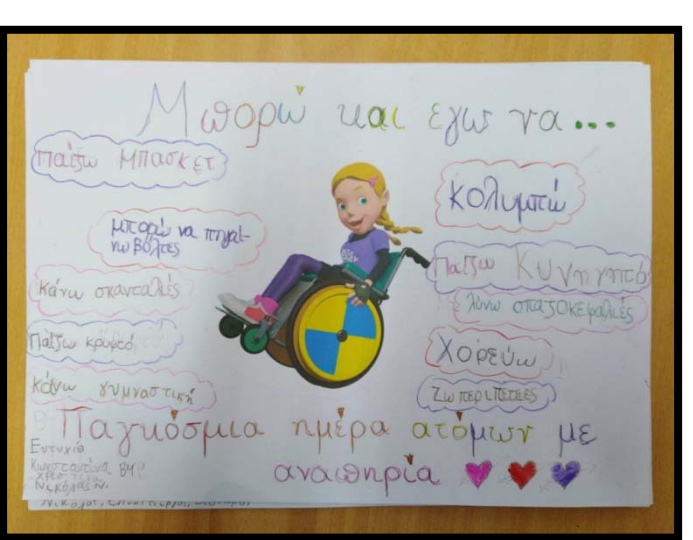 Μπορώ και εγώ να...
Παίζω Μπάσκετ
μπορώ να πηγαί-
νω βόλτες
Κάνω σκανταλιές
Παίζω κρυφτό
κάνω γυμναστική
κολυμπώ
Παίζω Κυνηγητό
λύνω σπαζοκεφαλιές
Χορεύω
Ζω περιπέτειες
Παγκόσμια ημέρα ατόμων με
αναπηρία
Ευτυχία
Κωνσταντίνα
Νικόλας Ν.